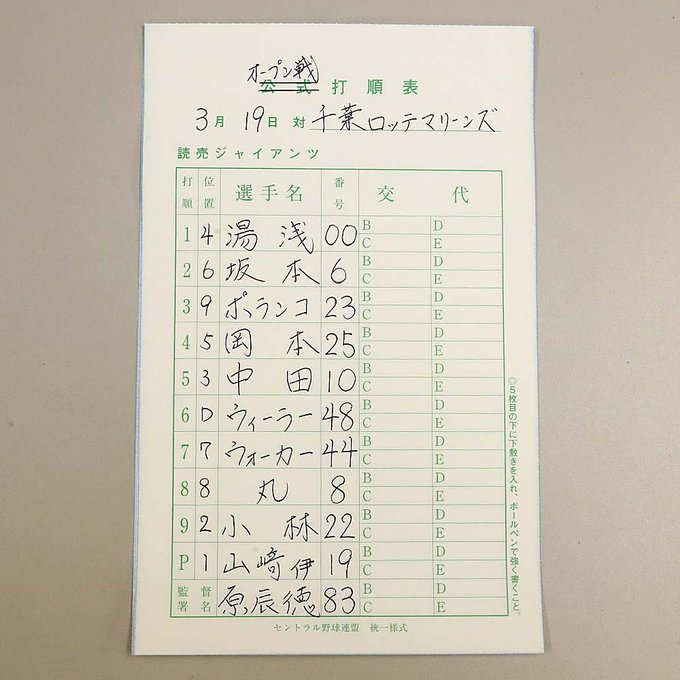 オープン戦
公式打順表
3月19日 対 千葉ロッテマリーンズ
読売ジャイアンツ
打順 位置 選手名 番号 交代
1 4 湯浅 00 B D C E
2 6 坂本 6 B D C E
3 9 ポランコ 23 B D C E
4 5 岡本 25 B D C E
5 3 中田 10 B D C E
6 D ウィーラー 48 B D C E
7 7 ウォーカー 44 B D C E
8 8 丸 8 B D C E
9 2 小林 22 B D C E
P 1 山﨑伊 19 B D C E
監督署名 原辰徳 83 B D C E
セントラル野球連盟 統一様式
◎5枚目の下に下敷きを入れ、ボールペンで強く書くこと。